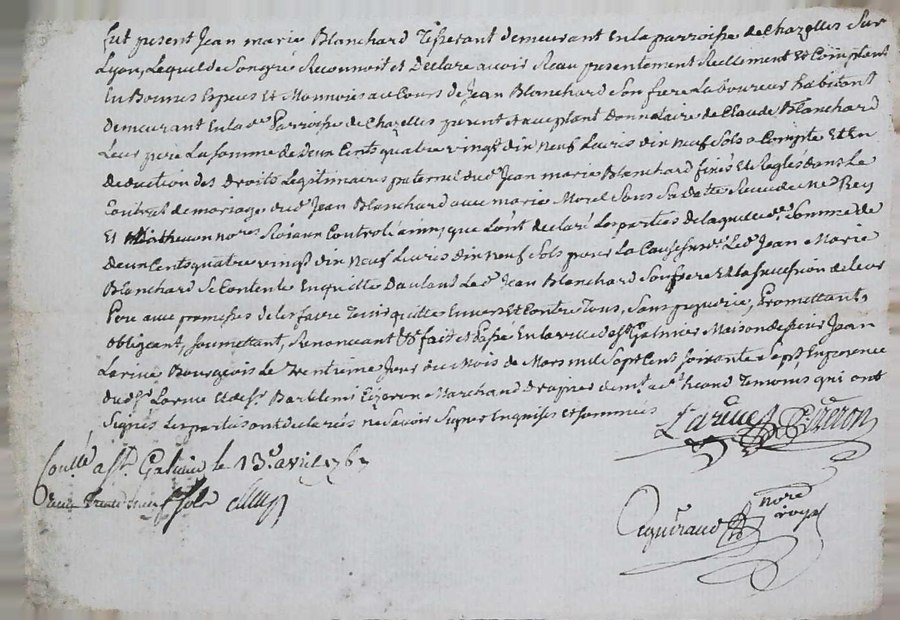 fut present Jean marie Blanchard Tisserant demeurant En la parroisse de Chazelles Sur
Lyon, Lequel de Son gré Reconnoit et Déclare avoir Reçu presentement Reellement Et Comptant
En Bonnes Especes Et Monnoies au Cours de Jean Blanchard Son frere Laboureur habitant
demeurant En lad.e Parroisse de Chazelles present et acceptant Donnataire de Claude Blanchard
Leur pere La somme de deux Cents quatre vingt dix Neuf Livres dix neuf Sols a Compte Et En
deduction des Droits Legitimaires paternels dud. Jean marie Blanchard fixés Et Reglés dans Le
Contrat de mariage dud. Jean Blanchard avec marie Morel Sous Sa datte Receu de Me Rey
Et Mathevon nores Roiaux Controllé ainsy que L'ont declaré Les parties de laquelle de. Somme de
deux Cents quatre vingt dix Neuf Livres dix neuf Sols pour La Cause Led. Jean Marie
Blanchard Se Contente En quitte Dautant Led. Jean Blanchard Son frere Et la Succession de leur
Pere avec promesses de les faire Tenir quittes Envers Et Contre Tous, Promettant,
obligeant, Soumettant, Renonceant & fait et Passé En la ville de St. Galmier Maison de Sieur Jean
Larive Bourgeois Le Trentieme Jour du Mois de Mars mil Sept Cent Soixante Sept En presence
dud. Sr. Larive Et de Sr. Barthlemi Marchand Drapier Temoins qui ont
Signés Les parties ont declarés ne Savoir Signer Enquises Et Sommées
Larive
Conllé a St. Galmier le 13e. avril 1767
Reçu Trente Neuf Sols
nore
royal